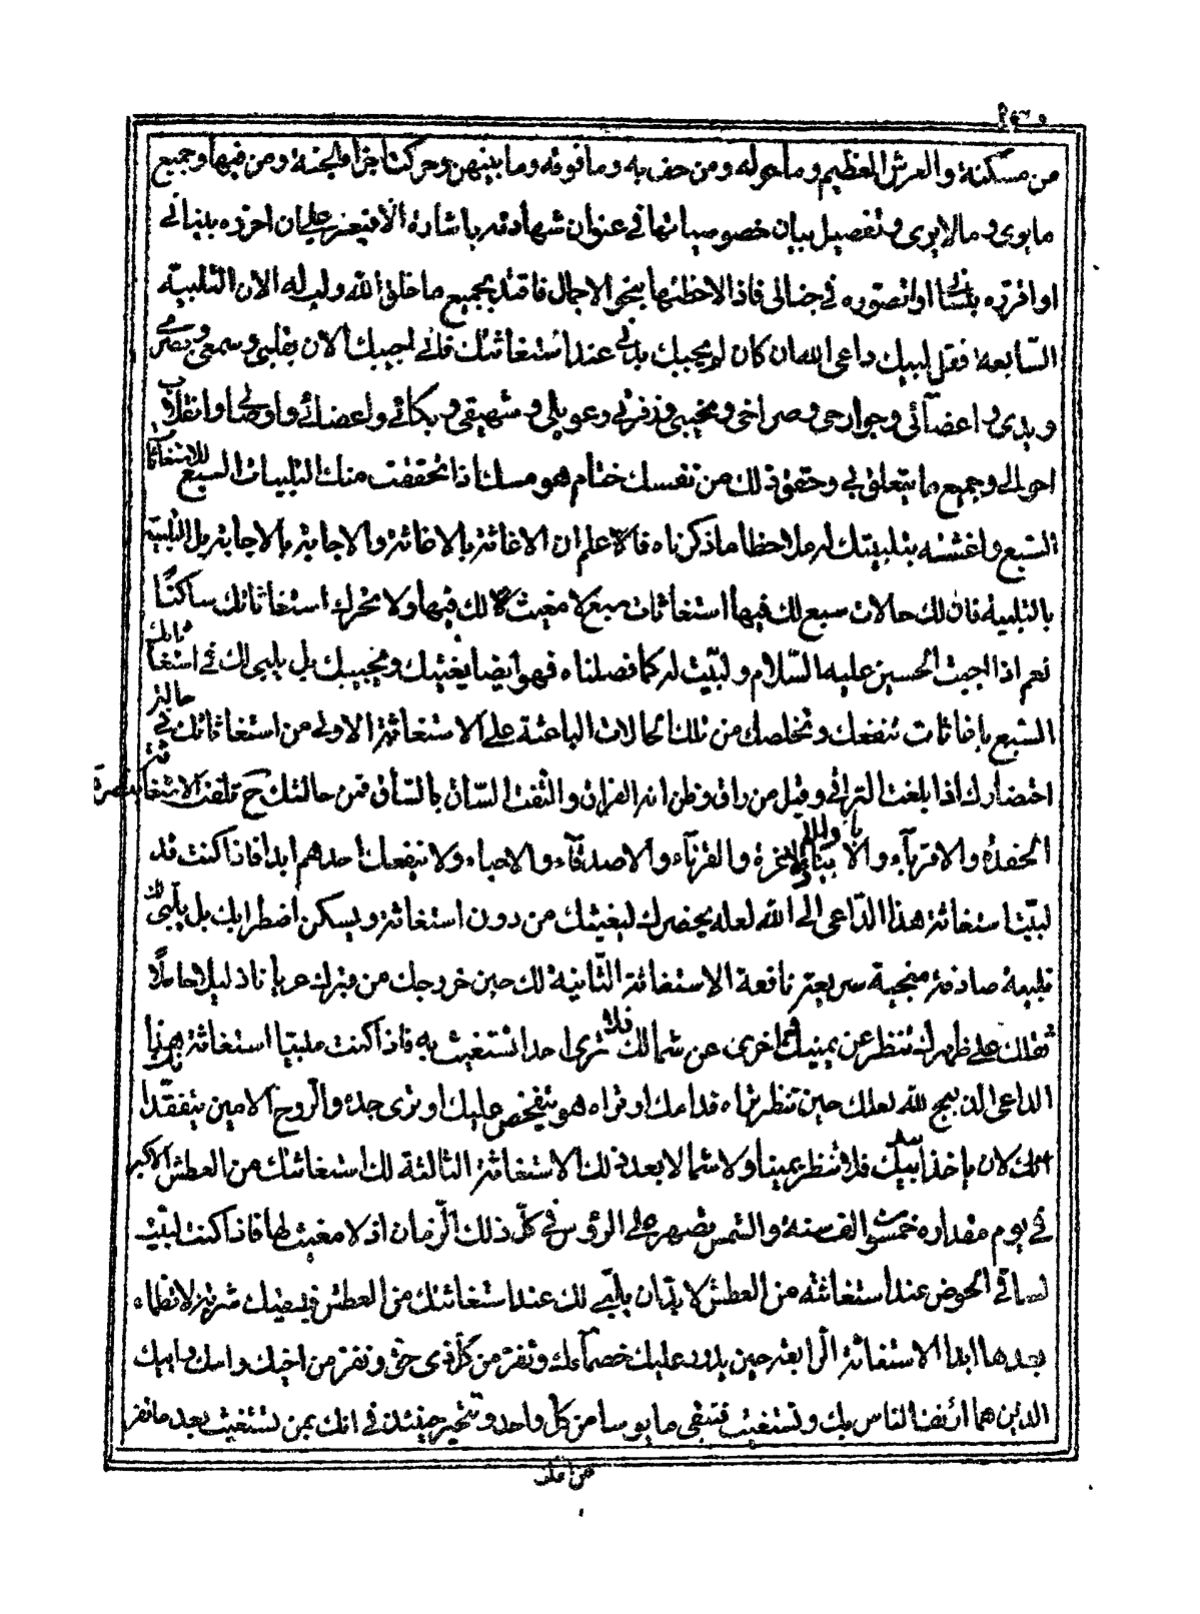 من مسكنة والعرش العظيم وما حوله ومن حف به وما فوقه وما بينهن وحركتا جزاء والجنة ومن فيها وجميع
ما يرى وما لا يرى وتفصيل بيان خصوصياتها في عنوان شهادته باشارة الا فيعذر علي ان احرزه ببناني
او اقرره بلساني او اتصوره في خيالي فاذا لاحظتها بنحو الاجمال فاقتد بجميع ما خلق الله ولب له الان التلبية
السابعة فقل لبيك داعي الله ان كان لم يجبك بدني عند استغاثتك فاني اجيبك الان بقلبي وسمعي وبصري
ويدي واعضائي وجوارحي وصراخي ونحيبي وزفرتي وعويلي وشهيقي وبكائي واعضائي واوضاعي وانقلاب
احوالي وجميع ما يتعلق بي وحقق ذلك من نفسك ختام هو مسك اذا تحققت منك التلبيات السبع للاستغاثات
السبع واغثته بتلبيتك له ملاحظا ما ذكرناه فاعلم ان الاغاثة بالاغاثة والاجابة بالاجابة بل التلبية
بالتلبية فان لك حالات سبع لك فيها استغاثات سبع لا مغيث لك فيها ولا محرك استغاثاتك ساكنا
نعم اذا اجبت الحسين عليه السلام ولبيت له كما فصلناه فهو ايضا يغيثك ويجيبك بل يلبي لك في استغاثاتك
السبع باغاثات تنفعك وتخلصك من تلك الحالات الباعثة على الاستغاثة الاولى من استغاثاتك في حالة
احتضارك اذا بلغت التراقي وقيل من راق وظن انه الفراق والتفت الساق بالساق فمن حالتك ح تلتفت الاستغاثة
الحفدة والاقرباء والابناء والاعزة والقرناء والاصدقاء والاحباء ولا ينفعك احدهم ابدا فاذا كنت قد
لبيت استغاثة هذا الداعي الى الله لعله يحضرك ليغيثك من دون استغاثة ويسكن اضطرابك بل يلبي لك
تلبية صادقة منجية سريعة نافعة الاستغاثة الثانية لك حين خروجك من قبرك عريانا ذليلا حاملا
ثقلك على ظهرك تنظر عن يمينك واخرى عن شمالك فلا ترى احدا تستغيث به فاذا كنت ملبيا استغاثة هذا
الداعي الذبيح لله لعلك حين تنظر تراه قدامك او تراه هو يتفحص عليك او ترى جده والروح الامين يتفقد
لك لان ياخذا بيدك فلا تنظر يمينا ولا شمالا بعد ذلك الاستغاثة الثالثة لك استغاثتك من العطش الاكبر
في يوم مقداره خمسين الف سنة والشمس يصهر على الرؤس في كل ذلك الزمان اذ لا مغيث لها فاذا كنت لبيت
لساقي الحوض عند استغاثته من العطش لا بد ان يلبي لك عند استغاثتك من العطش فيسقيك شربة لا تظماء
بعدها ابدا الاستغاثة الرابعة حين يدور عليك خصماءك وتفر من كل ذي حق وتفر من اخيك وامك وابيك
الذين هما ارئف الناس بك وتستغيث فتبقى مايوسا من كل واحد وتتحير حينئذ في انك بمن تستغيث بعد ما تفر
من امك